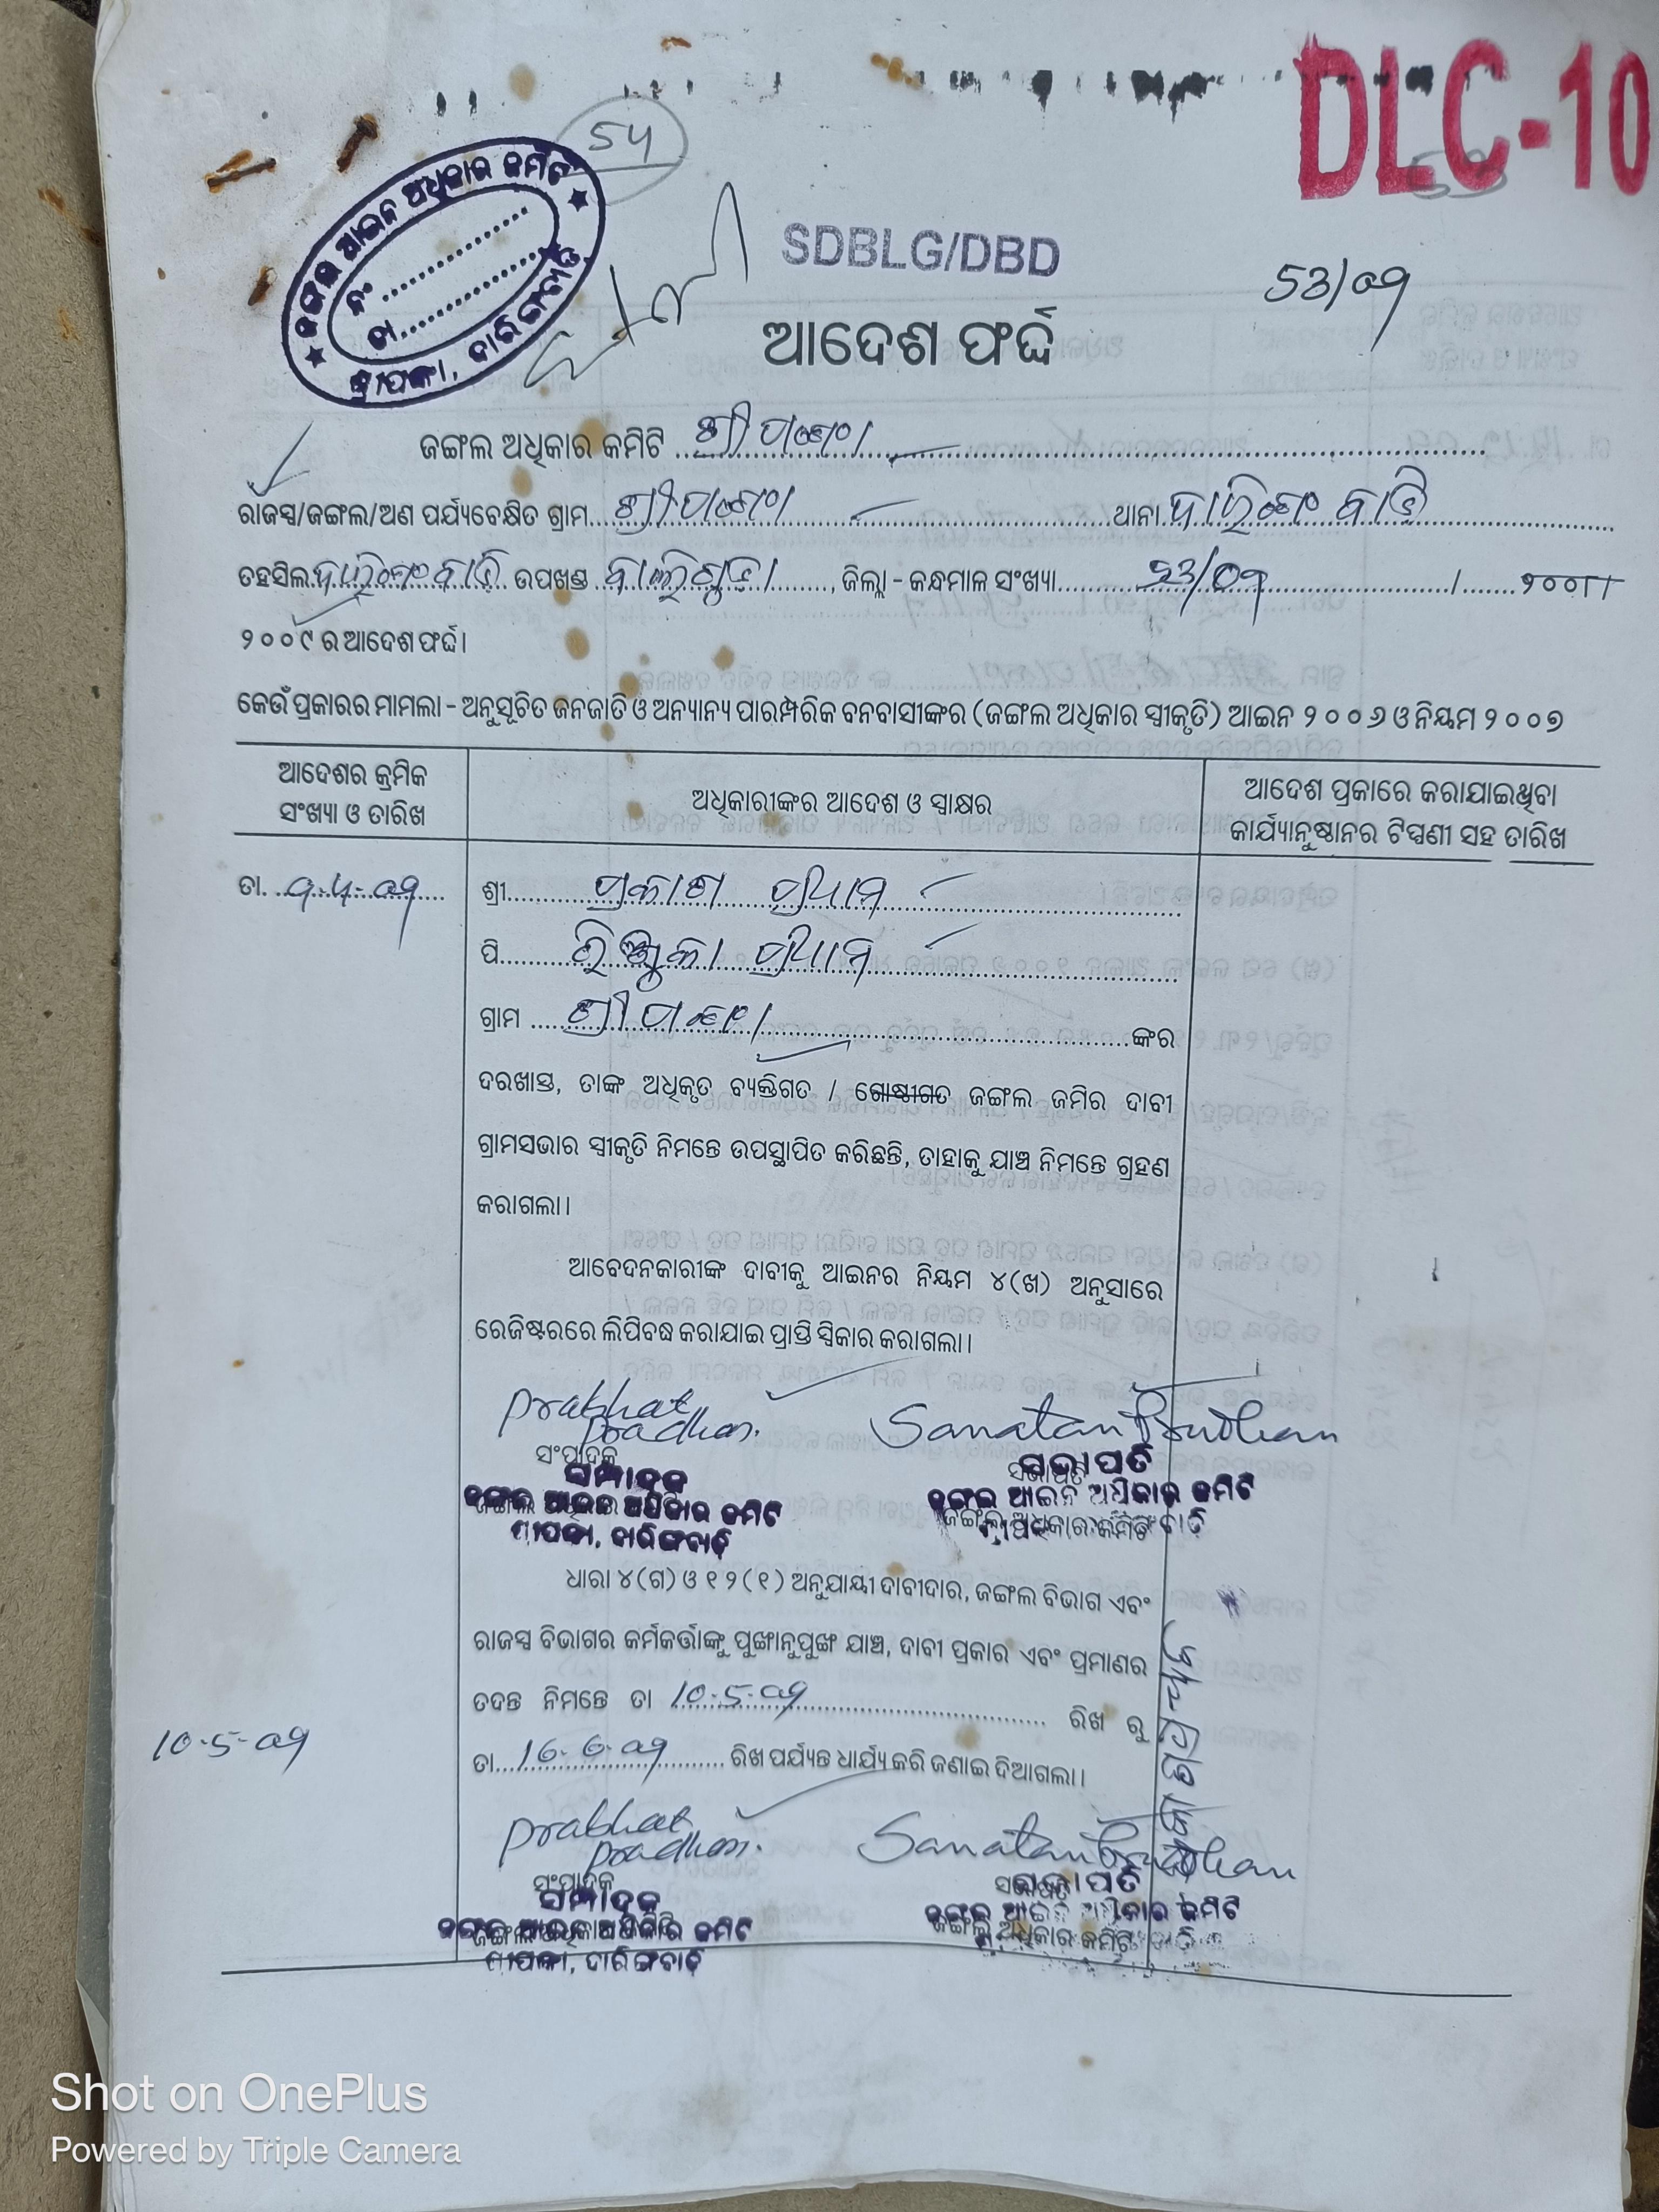 DLC-10
54
53
ଜଙ୍ଗଲ ଆଇନ ଅଧିକାର କମିଟି
ନଂ ..................
ତା..................
ଶ୍ରୀପଙ୍କା, ଦାରିଙ୍ଗବାଡ଼ି
SDBLG/DBD
53/09
ଆଦେଶ ଫର୍ଦ୍ଦ
ଜଙ୍ଗଲ ଅଧିକାର କମିଟି ଶ୍ରୀପଙ୍କା
ରାଜସ୍ୱ/ଜଙ୍ଗଲ/ଅଣ ପର୍ଯ୍ୟବେକ୍ଷିତ ଗ୍ରାମ ଶ୍ରୀପଙ୍କା ଥାନା ଦାରିଙ୍ଗବାଡି
ତହସିଲ ଦାରିଙ୍ଗବାଡି ଉପଖଣ୍ଡ ବାଲିଗୁଡା, ଜିଲ୍ଲା - କନ୍ଧମାଳ ସଂଖ୍ୟା ୫୬/୦୯ / ୨୦୦୮
୨୦୦୯ ର ଆଦେଶ ଫର୍ଦ୍ଦ।
କେଉଁ ପ୍ରକାରର ମାମଲା - ଅନୁସୂଚିତ ଜନଜାତି ଓ ଅନ୍ୟାନ୍ୟ ପାରମ୍ପରିକ ବନବାସୀଙ୍କର (ଜଙ୍ଗଲ ଅଧିକାର ସ୍ୱୀକୃତି) ଆଇନ ୨୦୦୬ ଓ ନିୟମ ୨୦୦୭
ଆଦେଶର କ୍ରମିକ ସଂଖ୍ୟା ଓ ତାରିଖ
ଅଧିକାରୀଙ୍କର ଆଦେଶ ଓ ସ୍ୱାକ୍ଷର
ଆଦେଶ ପ୍ରକାରେ କରାଯାଇଥିବା
କାର୍ଯ୍ୟାନୁଷ୍ଠାନର ଟିପ୍ପଣୀ ସହ ତାରିଖ
ତା. 9.4.09
ଶ୍ରୀ ପ୍ରକାଶ ପ୍ରଧାନ
ପି ପ୍ରଧାନ
ଗ୍ରାମ ଶ୍ରୀପଙ୍କା ଙ୍କର
ଦରଖାସ୍ତ, ତାଙ୍କ ଅଧିକୃତ ବ୍ୟକ୍ତିଗତ / ଗୋଷ୍ଠୀଗତ ଜଙ୍ଗଲ ଜମିର ଦାବୀ
ଗ୍ରାମସଭାର ସ୍ୱୀକୃତି ନିମନ୍ତେ ଉପସ୍ଥାପିତ କରିଛନ୍ତି, ତାହାକୁ ଯାଞ୍ଚ ନିମନ୍ତେ ଗ୍ରହଣ
କରାଗଲା।
ଆବେଦନକାରୀଙ୍କ ଦାବୀକୁ ଆଇନର ନିୟମ ୪(ଖ) ଅନୁସାରେ
ରେଜିଷ୍ଟରରେ ଲିପିବଦ୍ଧ କରାଯାଇ ପ୍ରାପ୍ତି ସ୍ୱିକାର କରାଗଲା।
Prabhat Pradhan. Sanatan Pradhan
ସଂପାଦକ ସଭାପତି
ସମ୍ପାଦକ ସଭାପତି
ଜଙ୍ଗଲ ଆଇନ ଅଧିକାର କମିଟି ଜଙ୍ଗଲ ଆଇନ ଅଧିକାର କମିଟି
ଜଙ୍ଗଲ ଅଧିକାର କମିଟି
ଶ୍ରୀପଙ୍କା, ଦାରିଙ୍ଗବାଡ଼ି
ଧାରା ୪(ଗ) ଓ ୧୨(୧) ଅନୁଯାୟୀ ଦାବୀଦାର, ଜଙ୍ଗଲ ବିଭାଗ ଏବଂ
ରାଜସ୍ୱ ବିଭାଗର କର୍ମକର୍ତ୍ତାଙ୍କୁ ପୁଙ୍ଖାନୁପୁଙ୍ଖ ଯାଞ୍ଚ, ଦାବୀ ପ୍ରକାର ଏବଂ ପ୍ରମାଣର
ତଦନ୍ତ ନିମନ୍ତେ ତା 10.5.09 ରିଖ ରୁ
10.5.09
ତା 16.6.09 ରିଖ ପର୍ଯ୍ୟନ୍ତ ଧାର୍ଯ୍ୟ କରି ଜଣାଇ ଦିଆଗଲା।
Prabhat Pradhan. Sanatan Pradhan
ସଂପାଦକ ସଭାପତି
ସମ୍ପାଦକ ସଭାପତି
ଜଙ୍ଗଲ ଆଇନ ଅଧିକାର କମିଟି ଜଙ୍ଗଲ ଆଇନ ଅଧିକାର କମିଟି
ଜଙ୍ଗଲ ଅଧିକାର କମିଟି
ଶ୍ରୀପଙ୍କା, ଦାରିଙ୍ଗବାଡ଼ି
Shot on OnePlus
Powered by Triple Camera